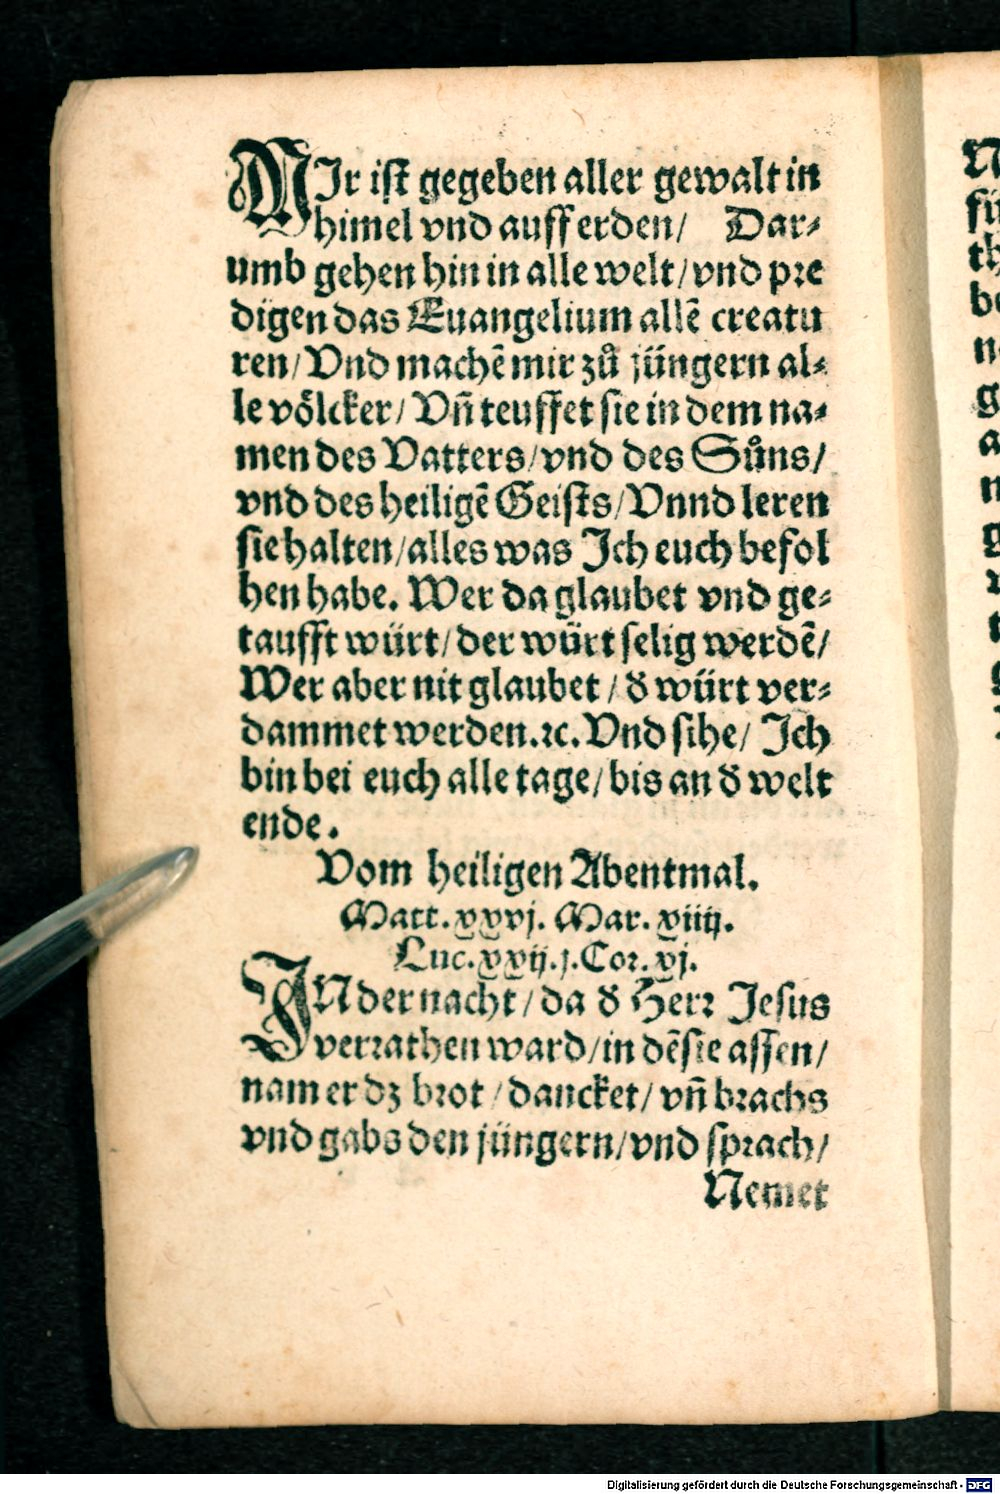 MIr ist gegeben aller gewalt in
himel vnd auff erden/ Dar⸗
umb gehen hin in alle welt/vnd pre
digen das Euangelium allẽ creatu
ren/Vnd machẽ mir zů jüngern al⸗
le völcker/ Vñ teuffet sie in dem na⸗
men des Vatters/vnd des Sůns/
vnd des heiligẽ Geists/Vnnd leren
sie halten/alles was Ich euch befol
hen habe. Wer da glaubet vnd ge⸗
taufft würt/der würt selig werdẽ/
Wer aber nit glaubet/đ würt ver⸗
dammet werden.ꝛc.Vnd sihe/ Ich
bin bei euch alle tage/bis an đ welt
ende.
Vom heiligen Abentmal.
Matt.xxvj. Mar.xiiij.
Luc.xxij.j.Cor.xj.
IN der nacht/da đ Herꝛ Jesus
verꝛathen ward/in dẽ sie assen/
nam er dz brot/dancket/vñ bꝛachs
vnd gabs den jüngern/vnd spꝛach/
Nemet
Digitalisierung gefördert durch die Deutsche Forschungsgemeinschaft - DFG